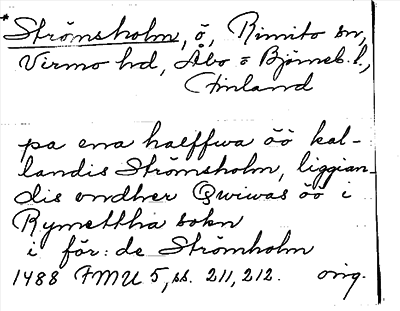 * Strömsholm, ö, Rimito sn,
Virmo hd, Åbo o Björneb. l.,
Finland
pa ena halffwa öö kal-
landis Strömsholm, liggian-
dis vndher Qwiwas öö i
Rymettha sokn
i för: de Strömholm
1488 FMU 5, ss. 211, 212. orig.